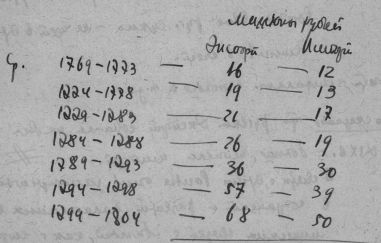 миллионы рублей
Экспорт Импорт
Ср. 1769–1773 — 16 — 12
1774–1778 — 19 — 13
1779–1783 — 21 — 17
1784–1788 — 26 — 19
1789–1793 — 36 30
1794–1798 — 57 — 39
1799–1804 — 68 — 50